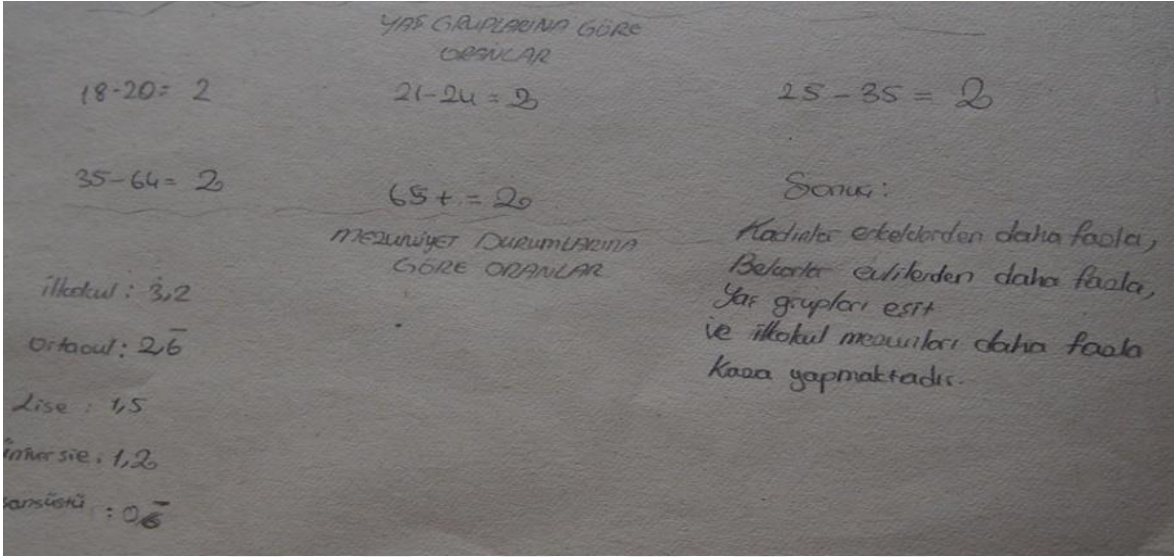 YAŞ GRUPLARINA GÖRE
ORANLAR
18-20= 2
21-24 = 2
25-35 = 2
35-64= 2
65 + = 2
MEZUNİYET DURUMLARINA
GÖRE ORANLAR
ilkokul : 3,2
ortaoul : 2,6̅
Lise : 1,5
üniversie : 1,2
sansüstü : 0,6̅
Sonuç :
Kadınlar erkeklerden daha fazla,
Bekarlar evlilerden daha fazla,
Yaş grupları eşit
ve ilkokul mezunları daha fazla
Kaza yapmaktadır.